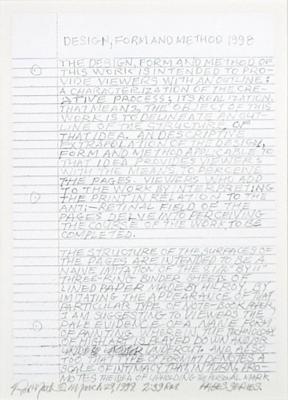 DESIGN, FORM AND METHOD 1998
THE DESIGN, FORM AND METHOD OF
THIS WORK IS INTENDED TO PRO-
VIDE VIEWERS WITH AN OUTLINE:
A CHARACTERIZATION OF THE CRE-
ATIVE PROCESS; ITS REALIZATION.
THAT MEANS, THE OBJECT OF THIS
WORK IS TO DELINEATE AN OUT-
LINE OF THE STRUCTURE OF
THAT IDEA. AN DESCRIPTIVE
EXTRAPOLATION OF THE DESIGN,
FORM AND METHOD APPLICABLE TO
THAT IDEA PROVIDES VIEWERS
WITH THE MEANS TO PERCEIVE
THE PAGES. VIEWERS WHO ADD
TO THE WORK BY INTERPRETING
THE PRINT IN RELATION TO THE
ANTI-RETINAL FIELD OF THE
PAGES DELVE INTO PERCEIVING
THE COURSE OF THE WORK TO BE
COMPLETED.
THE STRUCTURE OF THE SURFACES OF
THE PAGES ARE INTENDED TO BE A
NAIVE IMITATION OF THE 8½ BY 11"
THREE RING BINDER SHEETS OF
LINED PAPER MADE BY HILROY. BY
IMITATING THE APPEARANCE OF THAT
PARTICULAR TYPE OF
I AM SUGGESTING TO VIEWERS THE
PALE EVIDENCE OF A NAIVE FORM
OF PAINTING THE
OF HIGH ART PLAYED DOWN
UNDER IT.
THAT THE FORMAT DENOTES A
SCALE OF INTIMACY THAT IN TURN
NOTES THE IDEA OF PERSONAL MARK
MARCH 29, 1998 2:39 PAGES SERIES